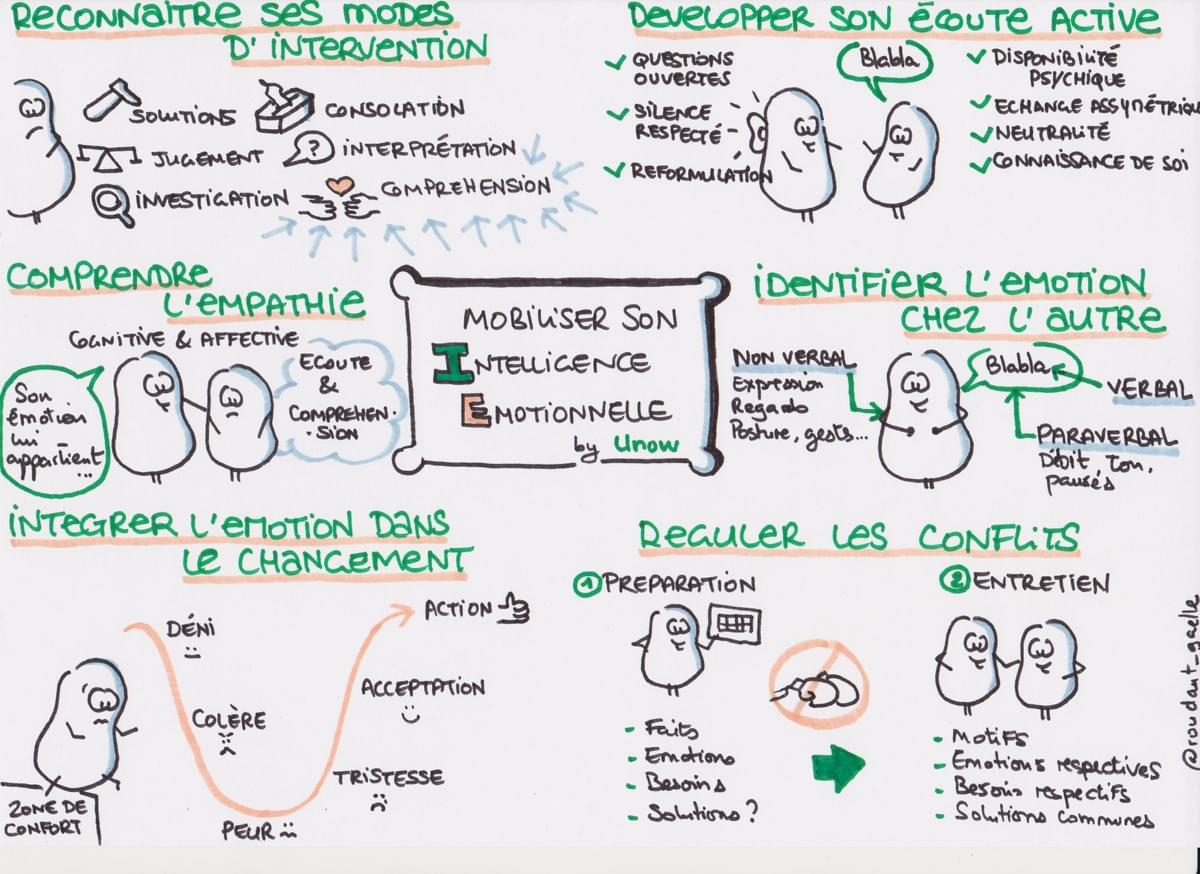 RECONNAITRE SES MODES
D'INTERVENTION
SOLUTIONS
CONSOLATION
JUGEMENT
?
INTERPRÉTATION
INVESTIGATION
COMPREHENSION
DEVELOPPER SON ÉCOUTE ACTIVE
QUESTIONS
OUVERTES
SILENCE
RESPECTÉ
REFORMULATION
Blabla
DISPONIBILITÉ
PSYCHIQUE
ECHANGE ASSYMÉTRIQUE
NEUTRALITÉ
CONNAISSANCE DE SOI
COMPRENDRE
L'EMPATHIE
COGNITIVE & AFFECTIVE
Son
émotion
lui
appartient
...
ECOUTE
&
COMPREHEN-
-SION
MOBILISER SON
INTELLIGENCE
EMOTIONNELLE
by Unow
IDENTIFIER L'EMOTION
CHEZ L'AUTRE
NON VERBAL
Expression
Regard
Posture, gests...
Blabla
VERBAL
PARAVERBAL
Débit, Ton,
pauses
INTEGRER L'EMOTION DANS
LE CHANGEMENT
DÉNI
COLÈRE
PEUR
TRISTESSE
ACCEPTATION
ACTION
ZONE DE
CONFORT
REGULER LES CONFLITS
1 PREPARATION
- Faits
- Emotions
- Besoins
- Solutions ?
2 ENTRETIEN
- Motifs
- Emotions respectives
- Besoins respectifs
- Solutions communes
@roudaut_gaelle